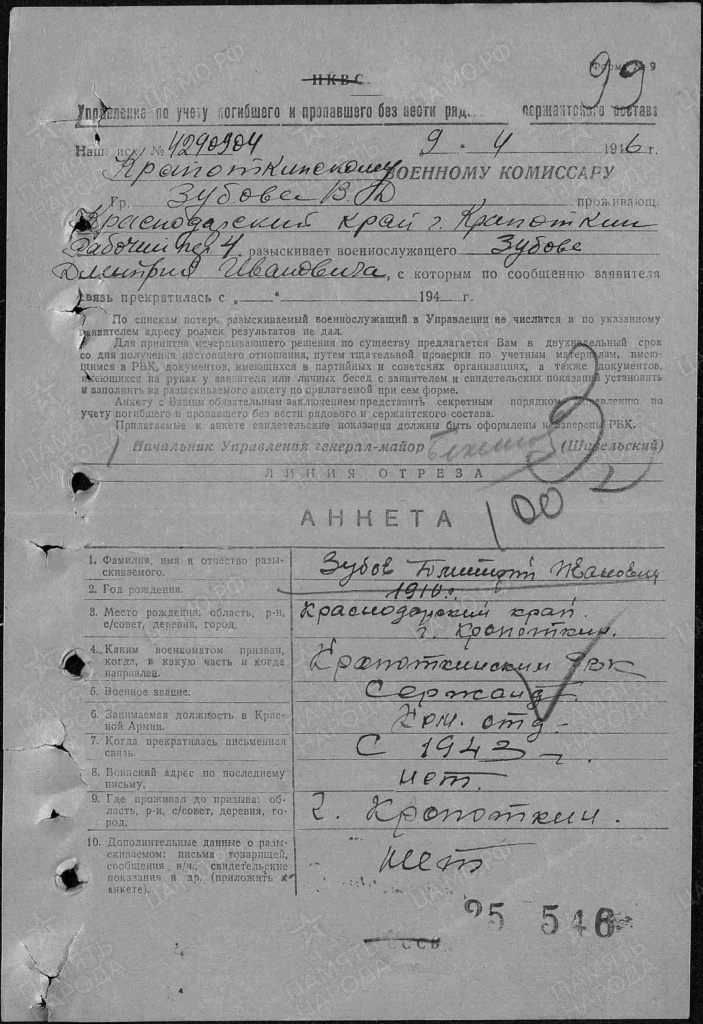 99
НКВС
Управление по учету погибшего и пропавшего без вести ряд... сержантского состава
Наш иск. № 4290904 9 · 4 1946 г.
Кропоткинскому ВОЕННОМУ КОМИССАРУ
Гр. Зубова В. Д проживающ.
Краснодарский край г. Кропоткин
Рабочий пер 4, разыскивает военнослужащего Зубова
Дмитрия Ивановича, с которым по сообщению заявителя
связь прекратилась с „ " 194 г.
По спискам потерь разыскиваемый военнослужащий в Управлении не числится и по указанному
заявителем адресу розыск результатов не дал.
Для принятия исчерпывающего решения по существу предлагается Вам в двухнедельный срок
со дня получения настоящего отношения, путем тщательной проверки по учетным материалам, имею-
щимся в РВК, документов, имеющихся в партийных и советских организациях, а также документов,
имеющихся на руках у заявителя или личных бесед с заявителем и свидетельских показаний установить
и заполнить на разыскиваемого анкету по прилагаемой при сем форме.
Анкету с Вашим обязательным заключением представить секретным порядком Управлению по
учету погибшего и пропавшего без вести рядового и сержантского состава.
Прилагаемые к анкете свидетельские показания должны быть оформлены и заверены РВК.
Начальник Управления генерал-майор (Шавельский)
ЛИНИЯ ОТРЕЗА
100
АНКЕТА
1. Фамилия, имя и отчество разы-
скиваемого.
Зубов Дмитрий Иванович
2. Год рождения.
1910 г.
3. Место рождения: область, р-н,
с/совет, деревня, город.
Краснодарский край.
г. Кропоткин.
4. Каким военкоматом призван,
когда, в какую часть и когда
направлен.
Кропоткинским РВК
5. Военное звание.
Сержант
6. Занимаемая должность в Крас-
ной Армии.
Ком. отд.
7. Когда прекратилась письменная
связь.
С 1943 г.
8. Воинский адрес по последнему
письму.
нет.
9. Где проживал до призыва: об-
ласть, р-н, с/совет, деревня, го-
род.
г. Кропоткин.
10. Дополнительные данные о разы-
скиваемом: письма товарищей,
сообщения в/ч., свидетельские
показания и др. (приложить к
анкете).
нет
95 546